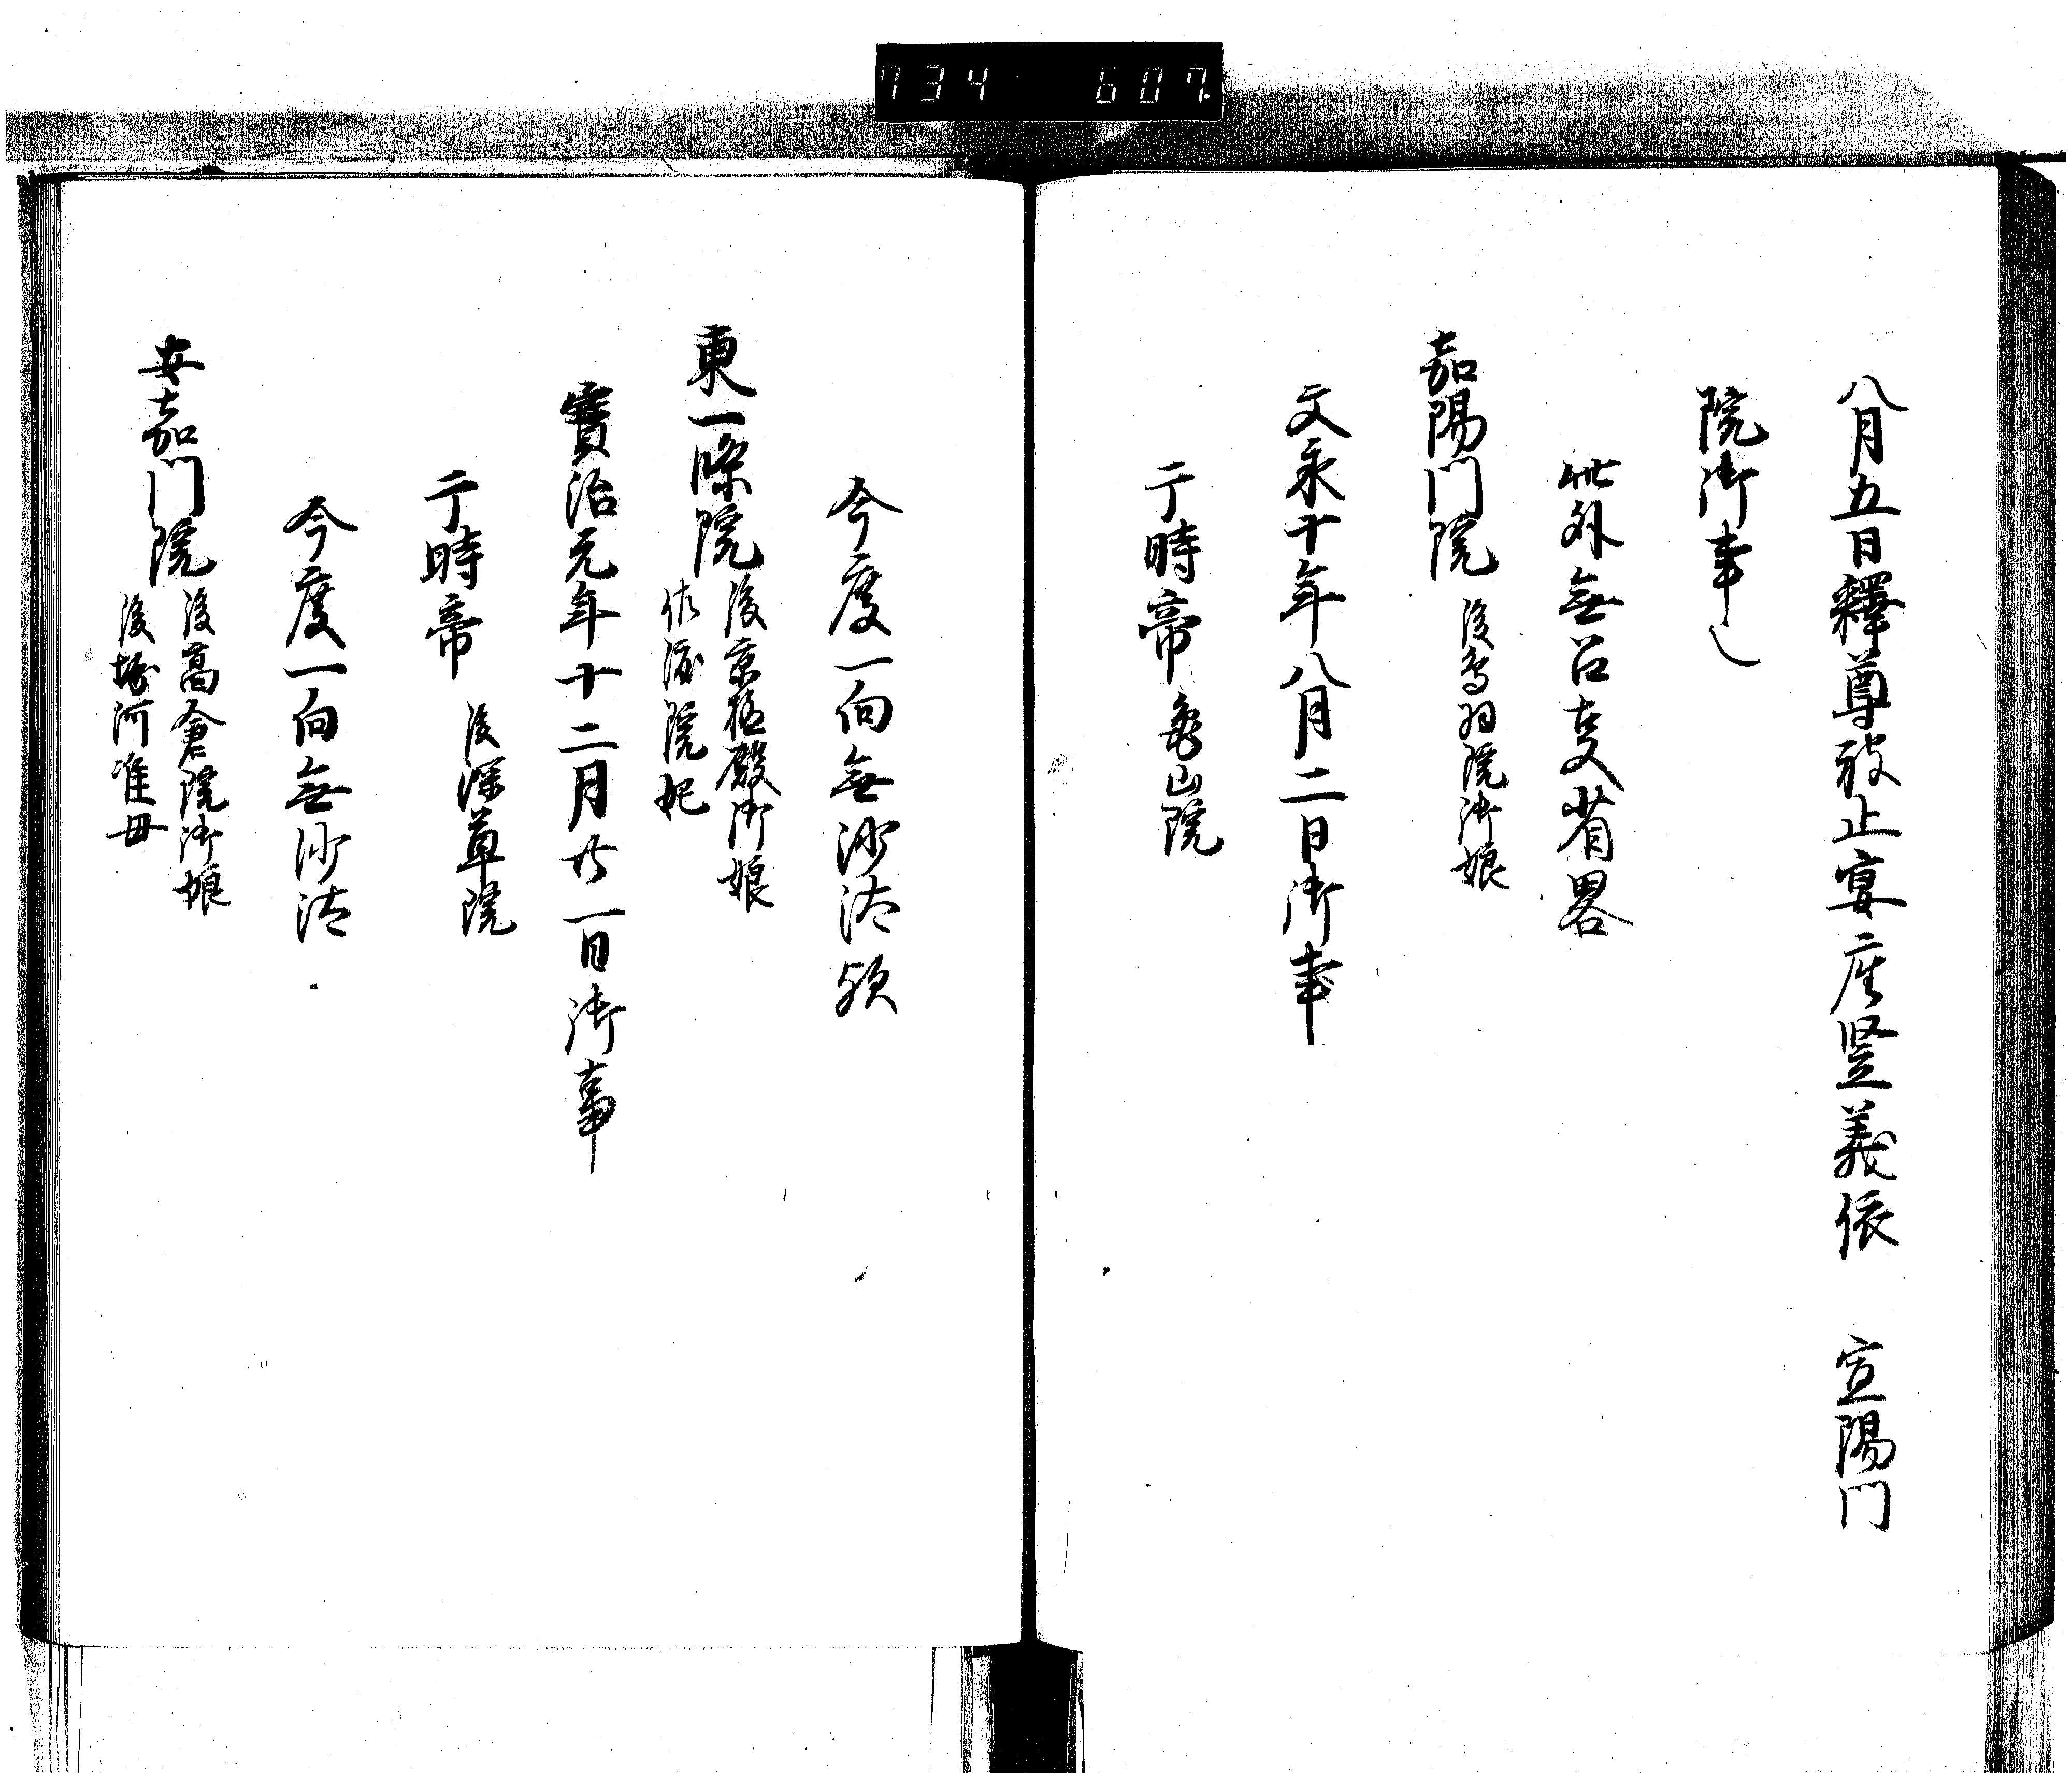 八月五日釋尊被止宴座竪義依　宣陽門
院御事也
此外無召支省畧
嘉陽門院 後鳥羽院御娘
文永十年八月二日御事
于時帝 亀山院
今度一向無沙汰歟
東一條院 後京極殿御娘
佐渡院妃
寳治元年十二月廿一日御事
于時帝 後深草院
今度一向無沙汰
安嘉門院 後高倉院御娘
後堀河准母
734 607